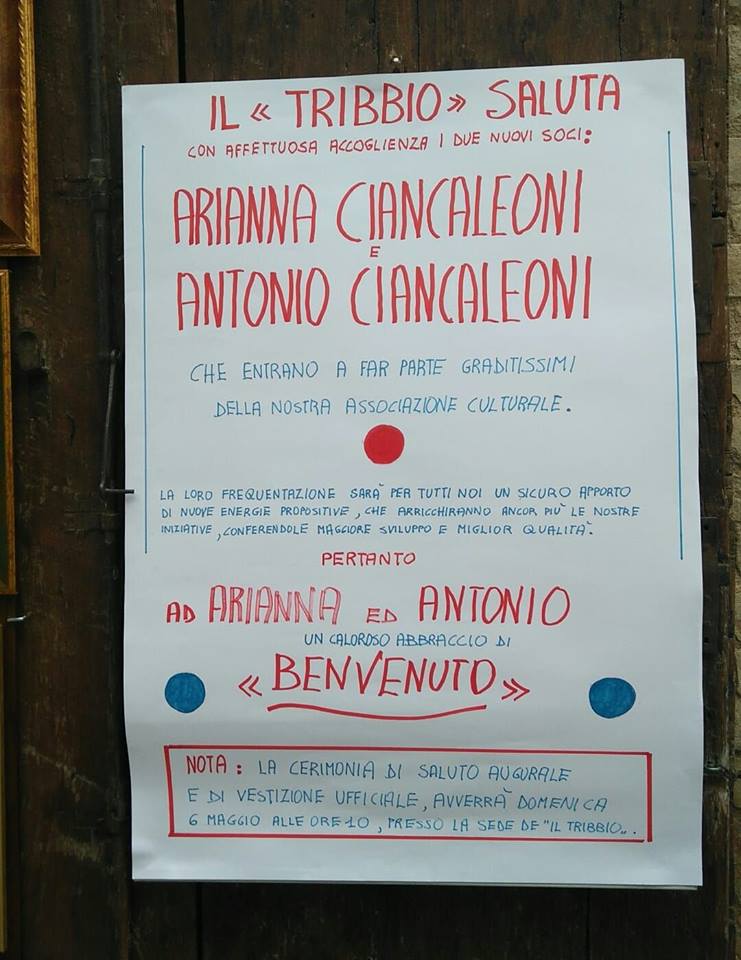 IL « TRIBBIO » SALUTA
CON AFFETTUOSA ACCOGLIENZA I DUE NUOVI SOCI:
ARIANNA CIANCALEONI
E
ANTONIO CIANCALEONI
CHE ENTRANO A FAR PARTE GRADITISSIMI
DELLA NOSTRA ASSOCIAZIONE CULTURALE.
LA LORO FREQUENTAZIONE SARÀ PER TUTTI NOI UN SICURO APPORTO
DI NUOVE ENERGIE PROPOSITIVE, CHE ARRICCHIRANNO ANCOR PIÙ LE NOSTRE
INIZIATIVE, CONFERENDOLE MAGGIORE SVILUPPO E MIGLIOR QUALITÀ.
PERTANTO
AD ARIANNA ED ANTONIO
UN CALOROSO ABBRACCIO DI
« BENVENUTO »
NOTA: LA CERIMONIA DI SALUTO AUGURALE
E DI VESTIZIONE UFFICIALE, AVVERRÀ DOMENICA
6 MAGGIO ALLE ORE 10, PRESSO LA SEDE DE "IL TRIBBIO„.